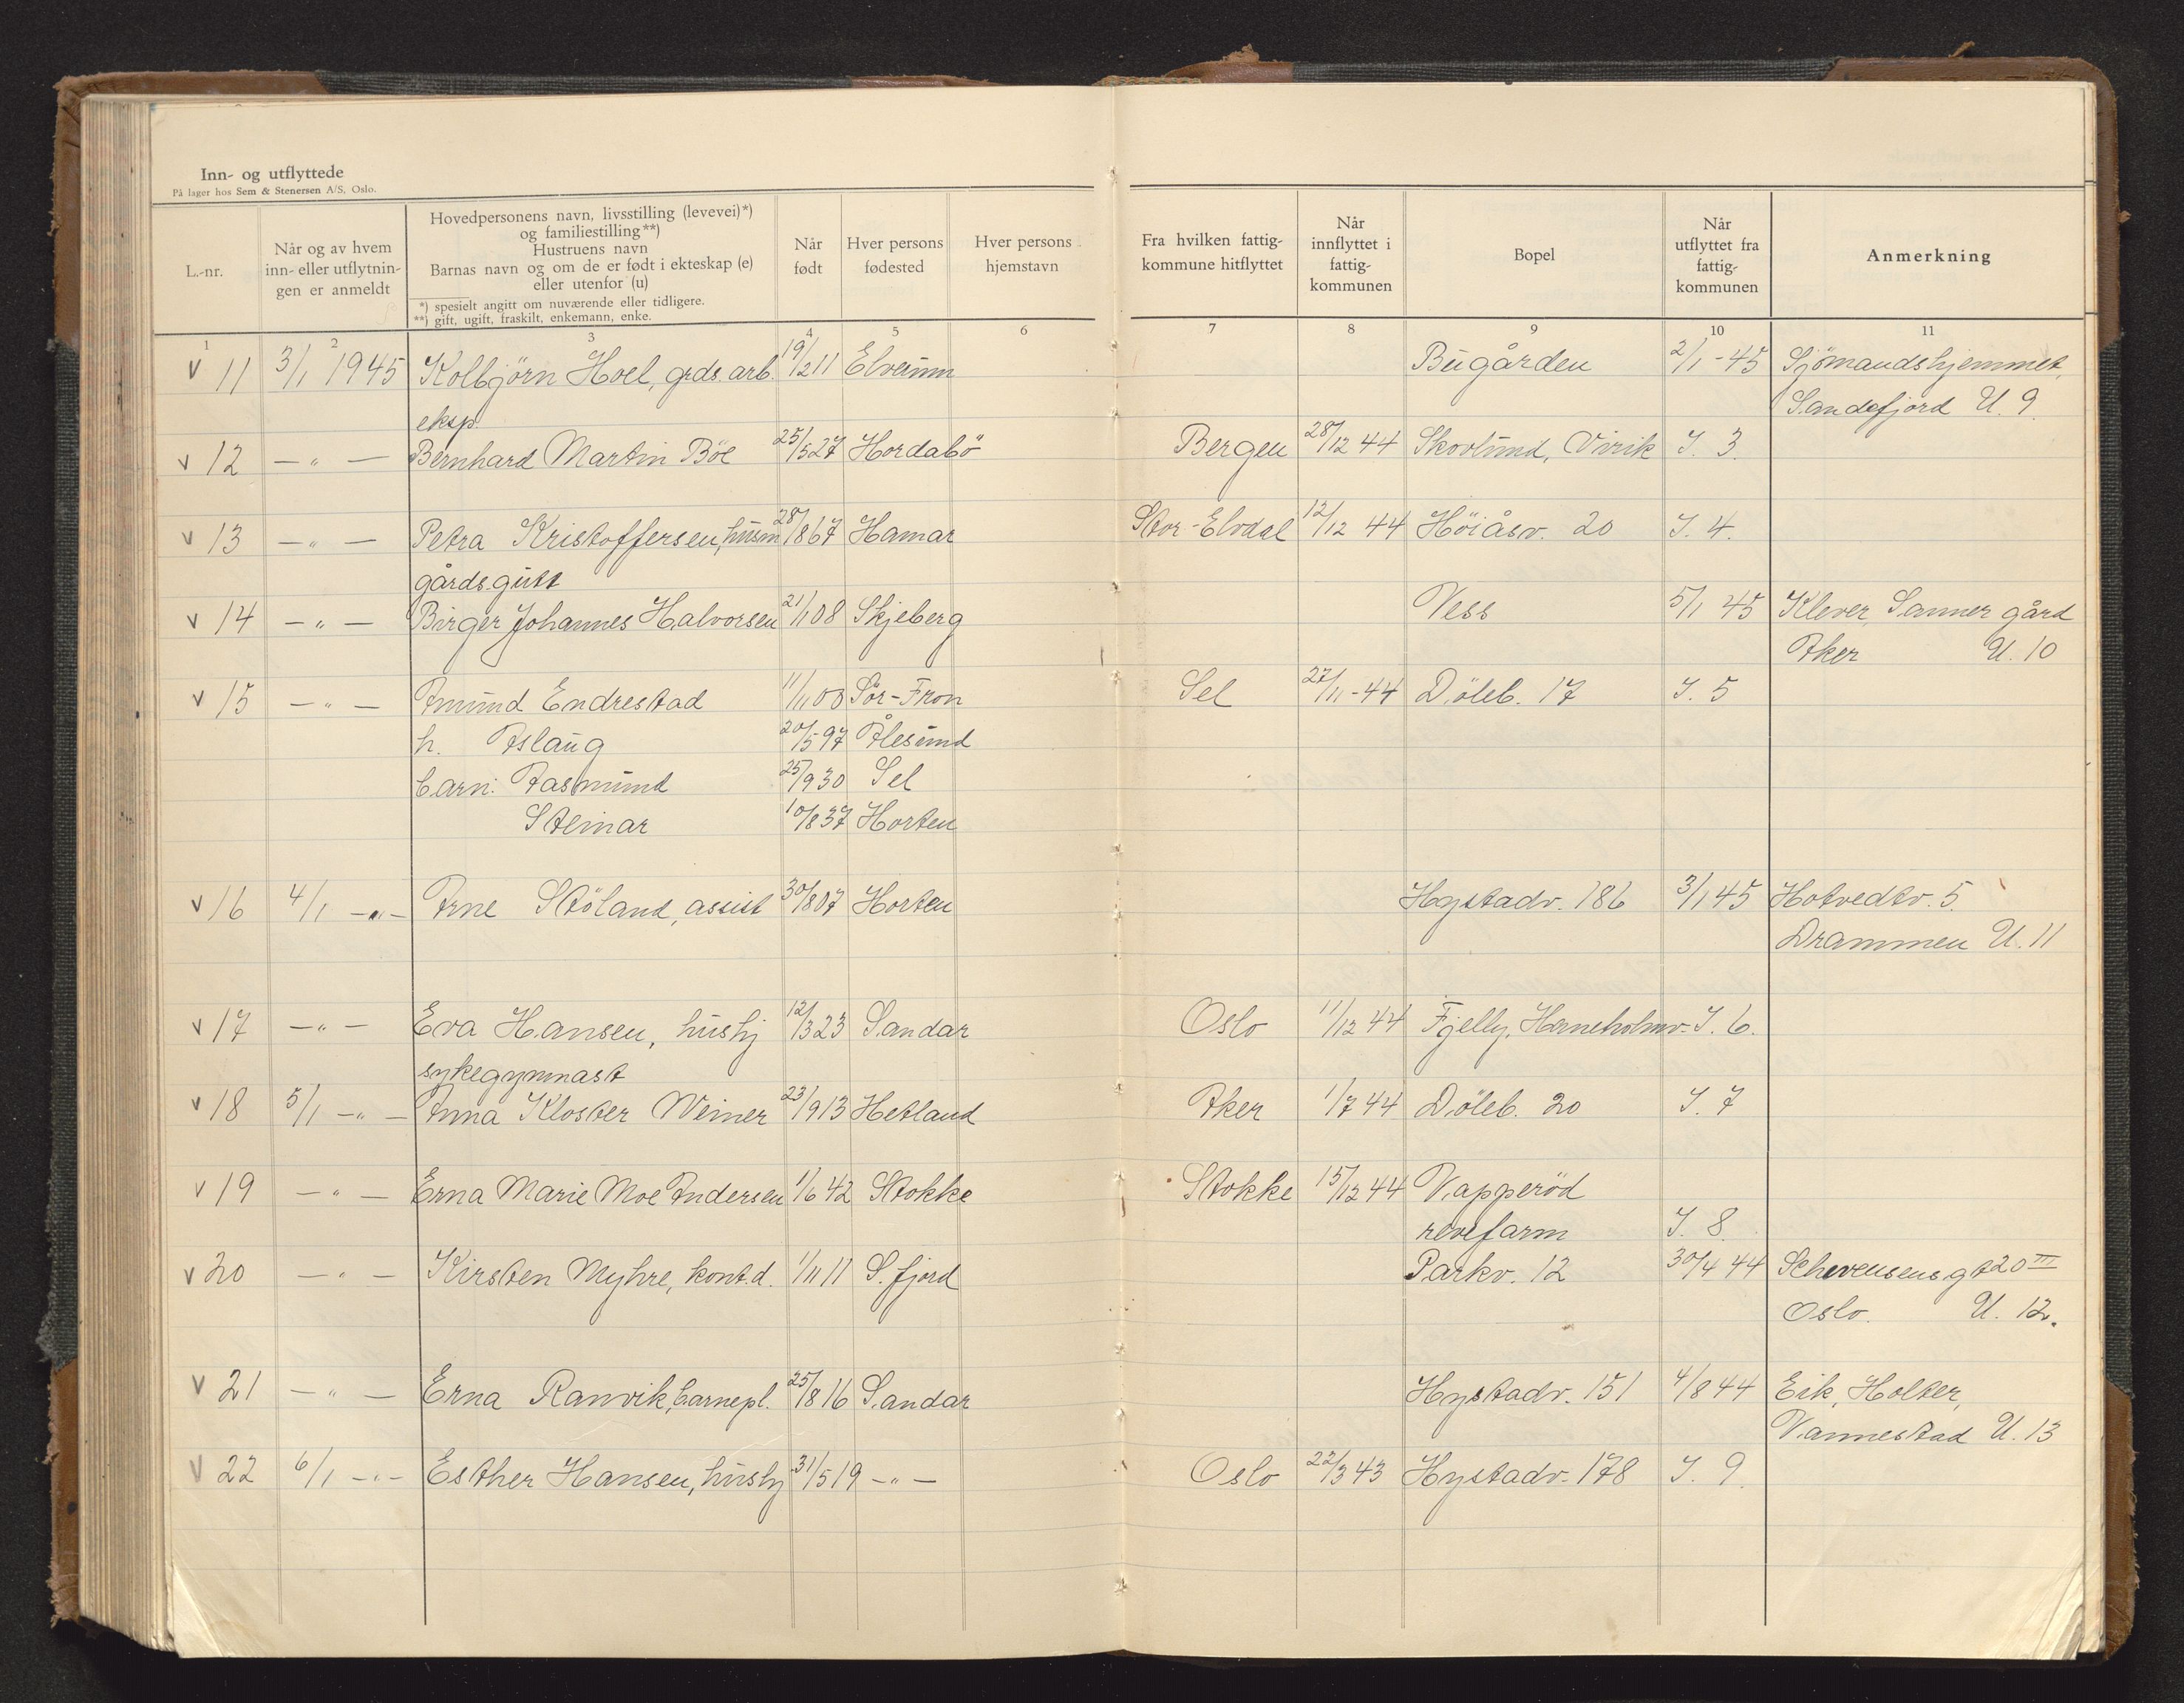 Inn- og utflyttede
På lager hos Sem & Stenersen A/S, Oslo.
L.-nr.
Når og av hvem
inn- eller utflytnin-
gen er anmeldt
Hovedpersonens navn, livsstilling (levevei)*)
og familiestilling**)
Hustruens navn
Barnas navn og om de er født i ekteskap (e)
eller utenfor (u)
*) spesielt angitt om nuværende eller tidligere.
**) gift, ugift, fraskilt, enkemann, enke.
Når
født
Hver persons
fødested
Hver persons
hjemstavn
Fra hvilken fattig-
kommune hitflyttet
Når
innflyttet i
fattig-
kommunen
Bopel
Når
utflyttet fra
fattig-
kommunen
Anmerkning
1 2 3 4 5 6 7 8 9 10 11
v 11 3/1 1945 Kolbjørn Hoel, grds.arb. 19/2 11 Elverum Bugården 2/1-45 Sjömandshjemmet,
Sandefjord U. 9.
eksp.
v 12 — " — Bernhard Martin Böe 25/5 27 Hordabö Bergen 28/12 44 Skovlund, Virik I. 3.
v 13 — " — Petra Kristoffersen, husm 28/8 67 Hamar Stor-Elvdal 12/12 44 Höiåsv. 20 I. 4.
gårdsgutt
v 14 — " — Birger Johannes Halvorsen 21/1 08 Skjeberg Vess 5/1 45 Klever, Sanner gård
Aker U. 10
v 15 — " — Amund Endrestad 11/11 00 Sör-Fron Sel 27/11-44 Döleb. 17 I. 5
h. Aslaug 20/5 97 Ålesund
barn: Aasmund 25/9 30 Sel
Steinar 10/8 37 Horten
v 16 4/1 — " — Arne Stöland, assist 30/8 07 Horten Hystadv. 186 3/1 45 Hotvedtv. 5.
Drammen U. 11
v 17 — " — Eva Hansen, hushj 12/3 23 Sandar Oslo 11/12 44 Fjelly, Herneholmv. I. 6.
sykegymnast
v 18 5/1 — " — Anna Kloster Weiner 23/9 13 Hetland Aker 1/7 44 Döleb. 20 I. 7
v 19 — " — Erna Marie Moe Andersen 1/6 42 Stokke Stokke 15/12 44 Vapperöd
revefarm I. 8.
v 20 — " — Kirsten Myhre, kont.d. 1/11 11 S.fjord Parkv. 12 30/4 44 Schwensens gt 20 III
Oslo. U. 12.
v 21 — " — Erna Ranvik, barnepl. 25/8 16 Sandar Hystadv. 151 4/8 44 Eik, Holter,
Vannestad U. 13
v 22 6/1 — " — Esther Hansen, hushj 31/5 19 — " — Oslo 22/3 43 Hystadv. 178 I. 9.